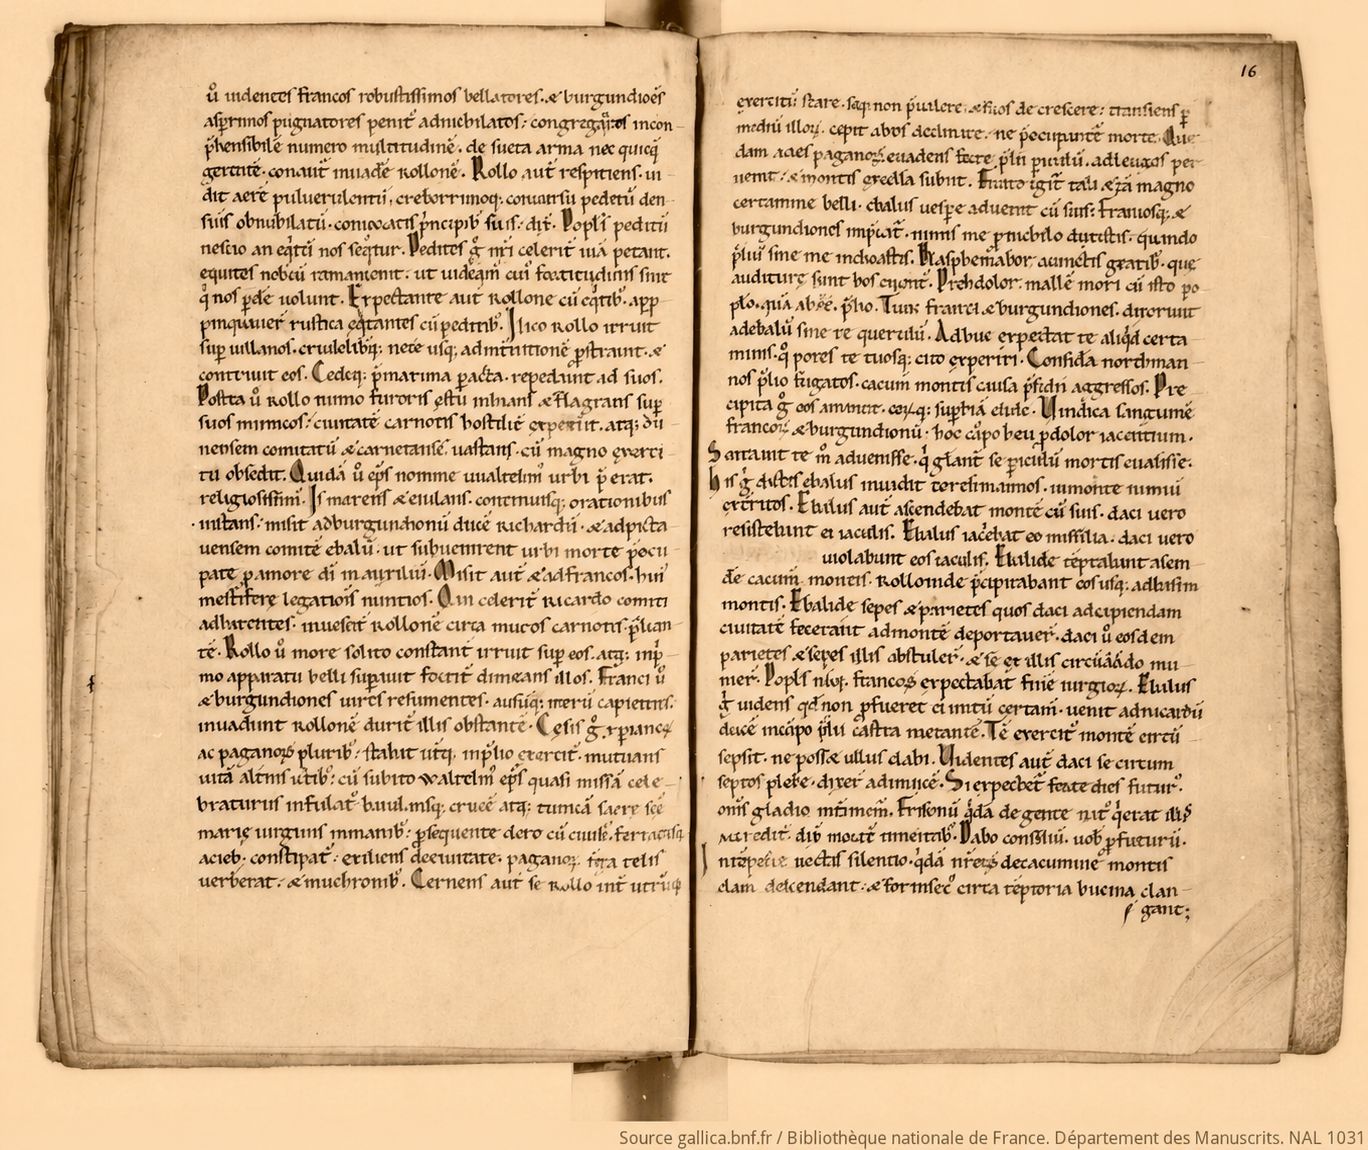 ů uidentes francos robustissimos bellatores. & burgundioēs
asp̱rimos pugnatores penit᷒ adnichilatos: congregatos incon
p̄hensibilē numero multitudinē. de sueta arma nec quicq̄
gerentē. conant᷒ inuadē Rollonē. Rollo aut̄ respiciens. ui
dit aerē puluerulentū, creberrimoq; concursu peditū den
suis obnubilatū. conuocatis p̓ncipib᷒ suis. dix̄. Popl̄s peditū
nescio an eq̓ti nos seq̓tur. Pedites g̊ nr̄i celerit̄ uiā petant.
equites nobcū remaneant. ut uideam̄ cui᷒ fortitudinis sint
q̓ nos p̱dē uolunt. Expectante aut̄ Rollone cū eq̓tib᷒. app̱
pinquauer̄ rustica eq̓tantes cū peditib᷒. Ilico Rollo irruit
sup̱ uillanos. crudelibq;. nece usq; ad p̱strauit. &
contriuit eos. Cedeq; p̱maxima p̱acta. repedauit ad suos.
Postea ů Rollo nimio furoris ęstu inhians & flagrans sup̱
suos inimicos: ciuitatē carnotis hostilit̄ expetiit. atq; du
nensem comitatū & carnetansē. uastans. cū magno exerci
tu obsedit. Quidā ů ep̄s nomine uualtelm᷒ urbi p̄erat.
religiosissim᷒. Is marens & eiulans. continuisq; orationibus
instans: misit adburgundionū ducē Richardū. & adpicta
uensem comitē ebalū. ut subuenirent urbi morte p̄ocu
patę p̱ amore dī in auxiliū. Misit aut̄ & adfrancos. hui᷒
mestiferę legatiōis nuntios. Qui celerit̄ Ricardo comiti
adherentes. inuesit Rollonē circa muros carnotis p̄lian
tē. Rollo ů more solito constant̄ irruit sup̱ eos. atq; inp̓
mo apparatu belli sup̱auit fortit̄ dimicans illos. Franci ů
& burgundiones uires resumentes. ausūq; iterū capientes.
inuadunt Rollonē durit̄ illis obstantē. Cęsis g̊. xpianoȝ
ac paganoȝ plurib᷒: stabit ut̓q; inp̄lio exercit᷒. mutuans
uitā altnis ictib᷒: cū subito waltelm᷒ ep̄s quasi missā cele
braturus infulat᷒. baiul.insq; crucē atq; tunicā sacre scē
marię uirginis inmanib᷒: p̱sequente clero cū ciuib᷒. ferratisq;
acieb᷒. constipat᷒: exiliens deciuitate. paganoȝ telis
uerberat. & muchronib᷒. Cernens aut̄ se Rollo int̄ utruq̓
16
exercitū stare. seq; non p̄ualere. & suos decrescere: transiens p̱
mediū illoȝ. cepit abeos declinare. ne p̄ocuparet̄ morte. Que
dam acies paganoȝ euadens forte p̄lii p̱iculū. adleugos per
uenit: & montis excelsa subiit. Finito igit̄ tali & tā magno
certamine belli. ebalus uesp̱e aduenit cū suis: Franciosq; &
burgundiones nimis me p̱ nichilo ducitis. quando
p̄liū sine me inchoastis. Blasphemabor acunctis gentib᷒. que
auditurę sunt hos euent᷒. Prohdolor. mallē mori cū isto po
plo. quā abēē. p̄lio. Tunc franci. & burgundiones. dixerunt
adebalū sine te querulū. Adhuc expectat te aliq̓d certa
minis. q̊ potes te tuosq; cito experiri. Considā nordman
nos p̄lio fugatos. cacum montis p̄fidii aggressos. Pre
cipita g̊ eos. eorq; sup̱biā elide. Vindica sanguinē
francoȝ & burgundionū. hoc cāpo heu p̱dolor iacentium.
S te m̊ aduenisse. q̓ gl̄ant̄ se p̱iculū mortis euasisse.
his g̊ dictis ebalus inuidit toresimannos. inmonte nimii
exercitos. Ebalus aut̄ ascendebat montē cū suis. daci uero
resistebant ei iaculis. Ebalus iaciebat eo missilia. daci uero
uiolabant eos iaculis. Ebalide temptabant ascen
de cacum̄ montis. Rolloinde p̄cipitabant eos usq; adbasim
montis. Ebalide sepes & parietes quos daci adcapiendam
ciuitatē fecerant admontē deportauer̄. daci ů eosdem
parietes & sepes illis abstuler̄. & se ex illis circūdando mu
nier̄. Popl̄s francoȝ expectabat finē iurgioȝ. Ebalus
g̊ uidens qd̄ non p̱fueret ei initū certam̄. uenit adricardū
ducē incāpo p̄lii castra metantē. Tc̄ exercit᷒ montē circū
sepsit. ne posse ullus elabi. Videntes aut̄ daci se circum
septos plebe. dixer̄ adinuicē. Si expectet̄ forte dies futur᷒.
om̄is gladio intimem̄. Frisonū q̓dā degente
div mortē timentib᷒. Dabo consiliū uob᷒ p̱futurū.
noctis silentio. q̓dā nr̄oȝ decacumine montis
clam descendant: & forinsec᷒ circa temptoria bucina clan
gant;
Source gallica.bnf.fr / Bibliothèque nationale de France. Département des Manuscrits. NAL 1031